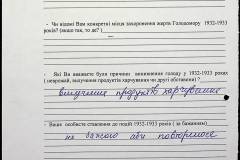 - Чи відомі Вам конкретні місця захоронення жертв Голодомору 1932-1933
років? (якщо так, то де? )
- Які Ви вважаєте були причини виникнення голоду у 1932-1933 роках
(неврожай, вилучення продуктів харчування чи другі обставини)?
вилучення продуктів харчування
- Ваше особисте ставлення до подій 1932-1933 років ( за бажанням).
не бажаю аби повторилося